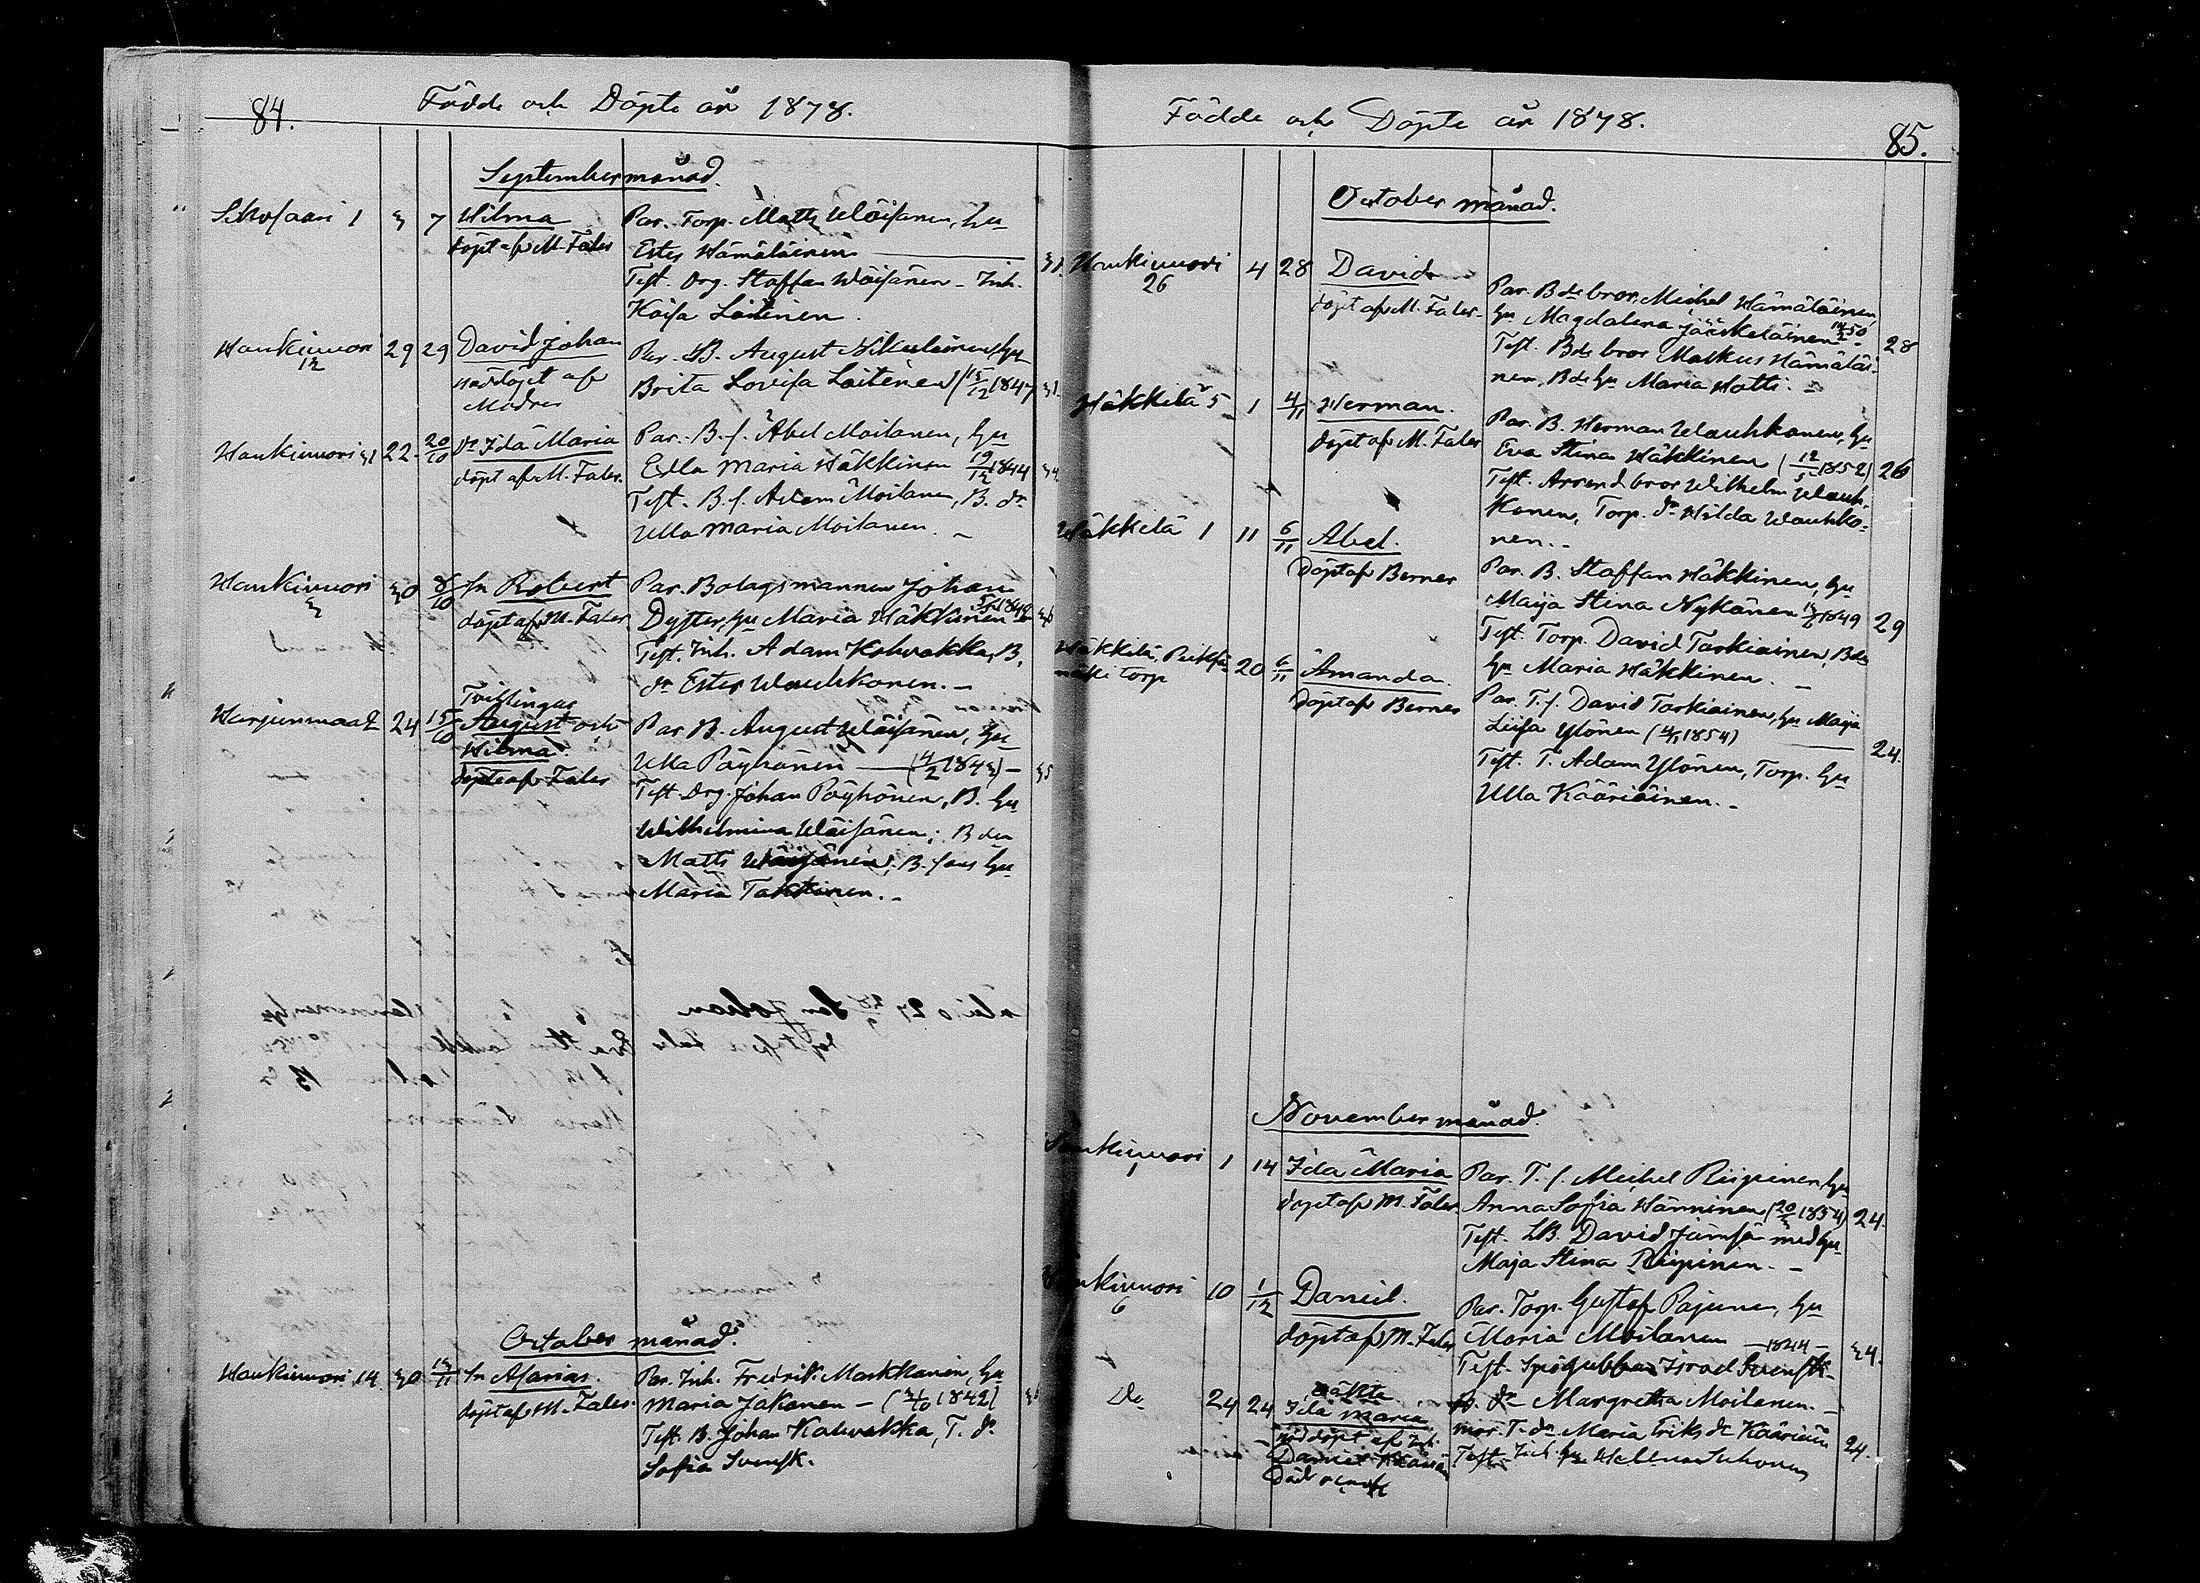 84.
Födde och Döpte år 1878.
September månad.
Sikosaari 1 3 7 Wilma
döpt af M. Fales
Par. Torp. Matts Wäisänen, hu
Ester Hämäläinen 31.
Test. Drg. Staffan Wäisänen - Inh.
Kaisa Laitinen.
Haukivuori 12 29 29 David Johan
nöddöpt af
Modren
Par. LB. August Nikulainen, hu
Brita Lovisa Laitinen (15/12 1847 31.
Haukivuori 31 22 20/10 Dr Ida Maria
döpt af M. Fales.
Par. B. s. Abel Moilanen, hu
Edla Maria Häkkinen 19/12 1844 34
Test. B. s. Adam Moilanen, B. dr
Ulla Maria Moilanen. -
Haukivuori 3 30 8/10 Sn Robert
döpt af M. Fales
Par. Bolagsmannen Johan
Dyster, hu Maria Häkkinen
Test. Inh. Adam Kolvakka, B.
dr Ester Wauhkonen. -
Harjunmaa 2 24 15/10 Tvillingar
August och
Wilma
döpte af Fales
Par. B. August Wäisänen, hu
Ulla Pöyhönen (4/2 1843) - 35
Test. Drg. Johan Pöyhönen, B. hu
Wilhelmina Wäisänen; Bden
Matts Wäisänen, B. sons hu
Maria Takkinen. -
October månad.
Haukivuori 14 30 Sn Asarias.
döpt af M. Fales.
Par. Inh. Fredrik Markkanen, hu
Maria Jakonen - (3/10 1842) 36
Test. B. Johan Kolvakka, T. dr
Sofia Svensk.
Födde och Döpte år 1878.
85.
October månad.
Haukivuori 26 4 28 David
döpt af M. Fales.
Par. Bde bror. Michel Hämäläinen
hu Magdalena Jääskeläinen
28
Test. Bde bror Markus Hämäläi-
nen, Bde hu Maria Hotti. -
Häkkilä 5 1 4/11 Herman.
döpt af M. Fales
Par. B. Herman Wauhkonen, hu
Eva Stina Häkkinen (12/5 1852) 26
Test. Arrend. bror Wilhelm Wauh-
konen, Torp. dr Hilda Wauhko-
nen. -
Häkkilä 1 11 6/11 Abel.
döpt af Berner
Par. B. Staffan Häkkinen, hu
Maija Stina Nykänen 1849 29
Test. Torp. David Tarkiainen, Bde
hu Maria Häkkinen. -
Häkkilä,
mäki Torp 20 6/11 Amanda.
döpt af Berner
Par. T. s. David Tarkiainen, hu Maija
Liisa Ylönen (4/1 1854) 24.
Test. T. Adam Ylönen, Torp. hu
Ulla Kääriäinen. -
November månad.
Haukivuori 1 1 14 Ida Maria
döpt af M. Fales.
Par. T. s. Michel Riipinen, hu
Anna Sofia Hänninen (20/3 1854) 24.
Test. LB. David Jämsä med hu
Maja Stina Riipinen. -
Haukivuori 6 10 1/12 Daniel.
döpt af M. Fales
Par. Torp. Gustaf Pajunen, hu
Maria Moilanen - 1844 - 34.
Test. Israel Svensk
B. dr Margretha Moilanen. -
Do 24 24 oäkta
Ida Maria
nöddöpt af Inh.
Daniel
mor. T. dr Maria Eriks dr Kääriäin 24.
Test. Inh. hu